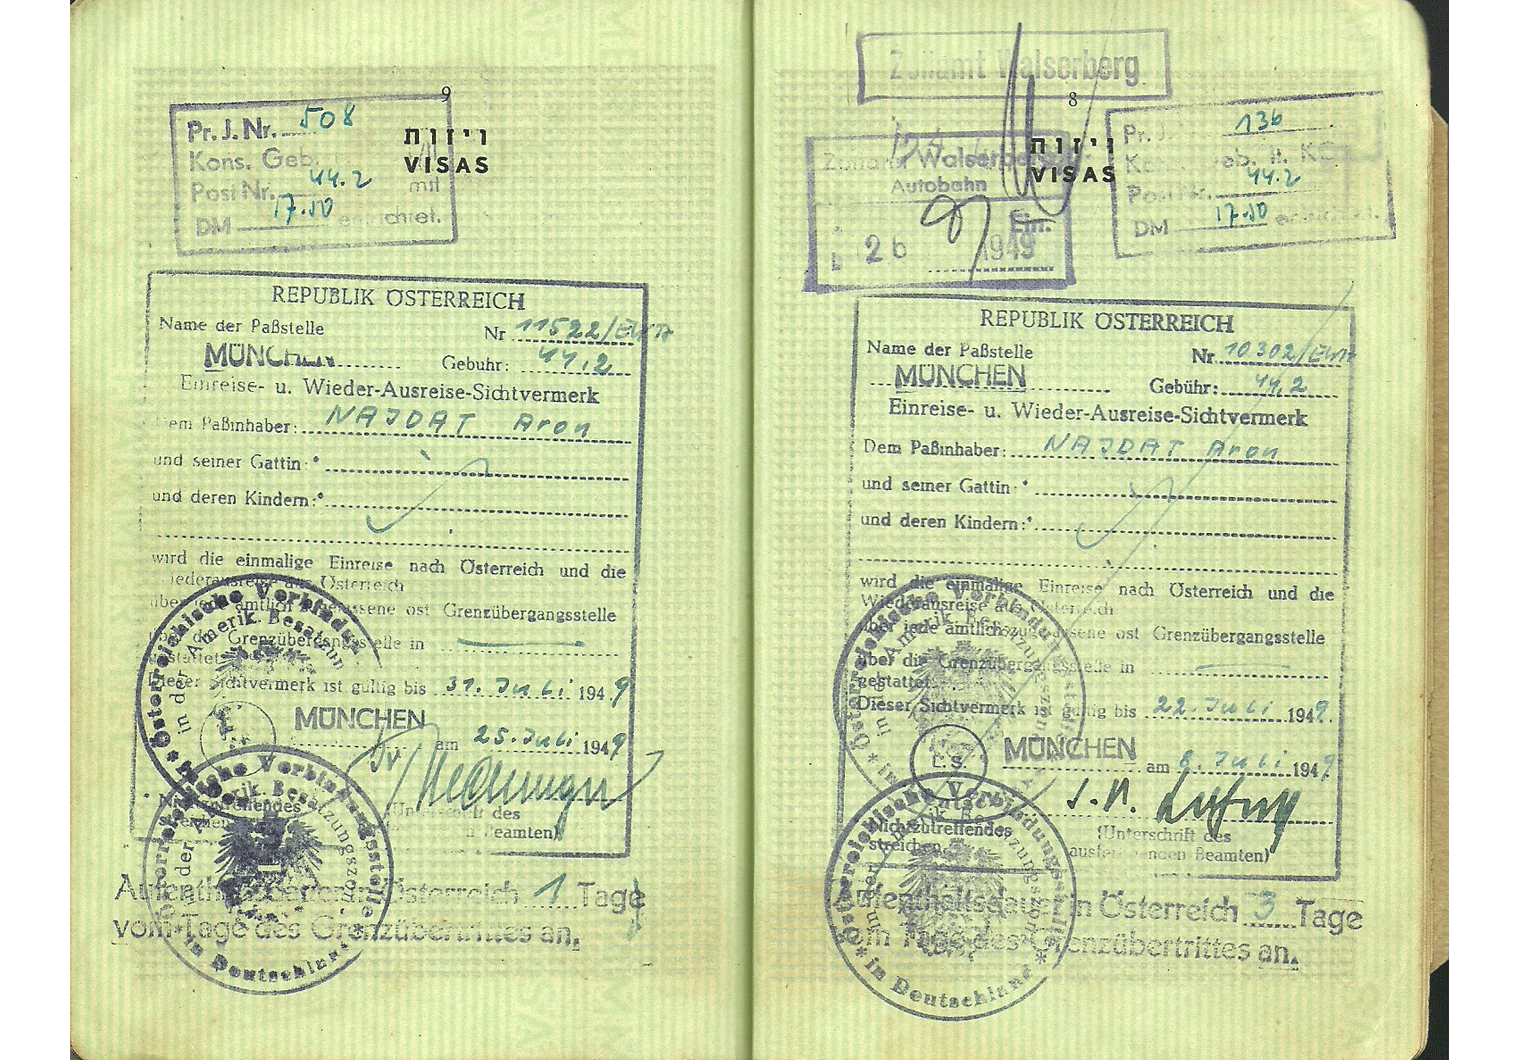 9
Pr. J. Nr. 508
Kons. Geb.
Post Nr. 44.2 mit
DM 17.50 entrichtet.
ויזות
VISAS
REPUBLIK ÖSTERREICH
Name der Paßstelle
Nr 11522/
MÜNCHEN
Gebühr: 44.2
Einreise- u. Wieder-Ausreise-Sichtvermerk
Dem Paßinhaber: NAJDAT Aron
und seiner Gattin *
und deren Kindern:*
wird die einmalige Einreise nach Österreich und die
Wiederausreise aus Österreich
über jede amtlich zugelassene öst Grenzübergangsstelle
über die Grenzübergangsstelle in
gestattet.
Dieser Sichtvermerk ist gültig bis 31. Juli 1949
MÜNCHEN am 25. Juli 1949
Nichtzutreffendes
streichen
(Unterschrift des
Beamten)
Österreichische Verbindungsstelle
in der Amerik. Besatzungszone
in Deutschland
Aufenthaltsdauer in Österreich 1 Tage
vom Tage des Grenzübertrittes an.
Zollamt Walserberg
8
Zollamt Walserberg
Autobahn
Ein.
26 1949
ויזות
VISAS
Pr. J. 136
Post Nr. 44.2
DM 17.50 entrichtet.
REPUBLIK ÖSTERREICH
Name der Paßstelle
Nr 10302/
MÜNCHEN
Gebühr: 44.2
Einreise- u. Wieder-Ausreise-Sichtvermerk
Dem Paßinhaber: NAJDAT Aron
und seiner Gattin *
und deren Kindern:*
wird die einmalige Einreise nach Österreich und die
Wiederausreise aus Österreich
über jede amtlich zugelassene öst Grenzübergangsstelle
über die Grenzübergangsstelle in
gestattet.
Dieser Sichtvermerk ist gültig bis 22. Juli 1949
L.S.
MÜNCHEN am 8. Juli 1949
Nichtzutreffendes
streichen
(Unterschrift des
ausfertigenden Beamten)
Österreichische Verbindungsstelle
in der Amerik. Besatzungszone
in Deutschland
Aufenthaltsdauer in Österreich 3 Tage
vom Tage des Grenzübertrittes an.